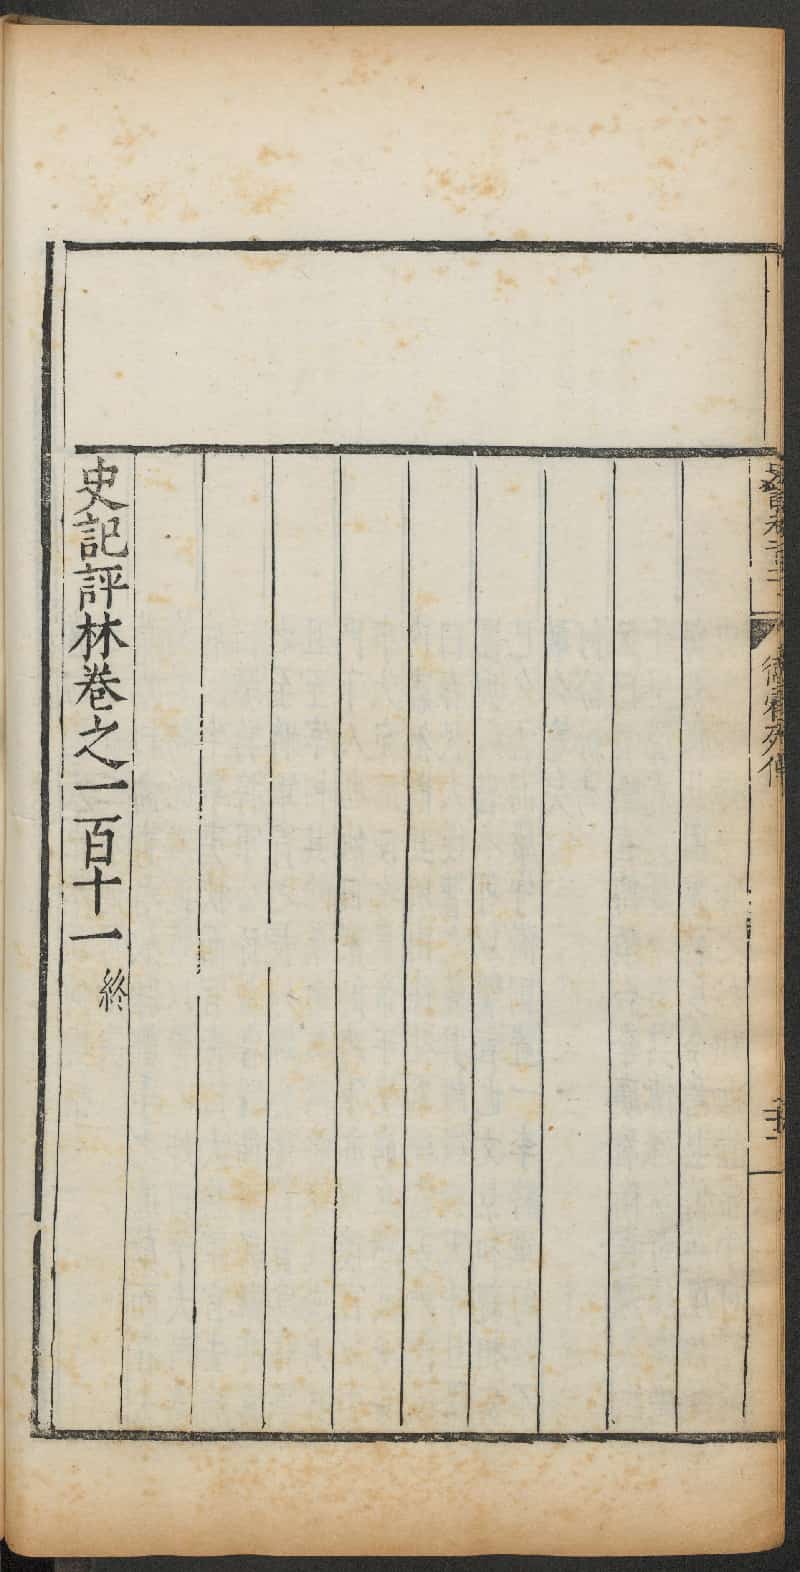 衛霍列傳
史記評林卷之一百十一
終